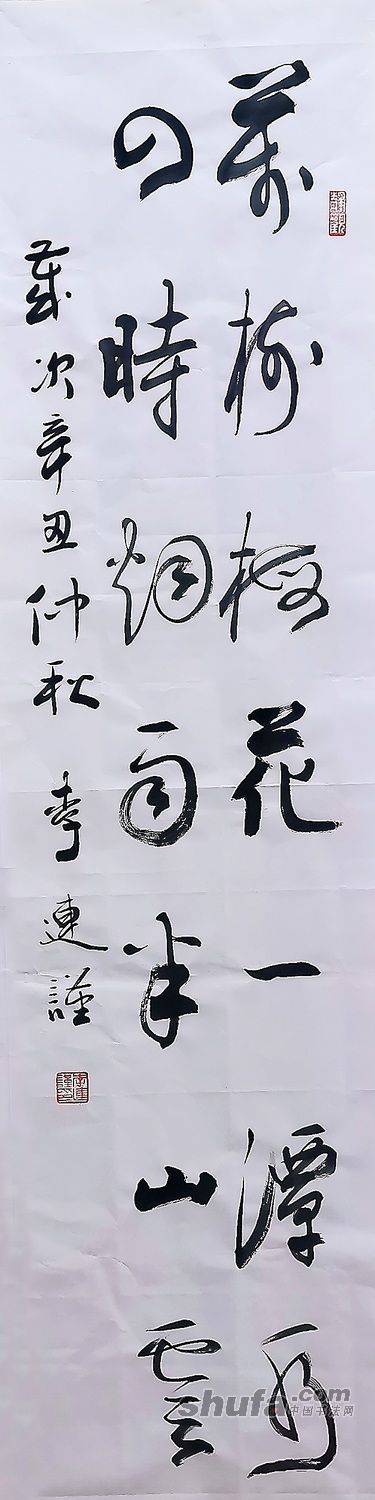 萬樹梅花一潭水
四時烟雨半山雲
歲次辛丑仲秋 李連謹
shufa.com
中国书法网